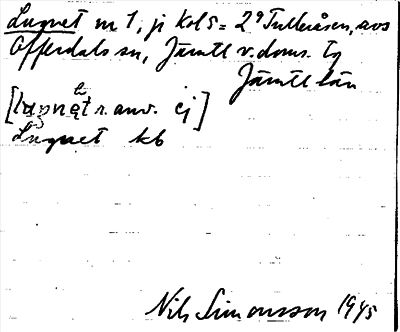 Lugnet nr 1, jr Kol 5 = 2⁹ Tulleråsen, avs
Offerdals sn, Jämtl v. doms. tg
Jämtl län
[r. anv. ej]
Lugnet kb
Nils Simonsson 1945